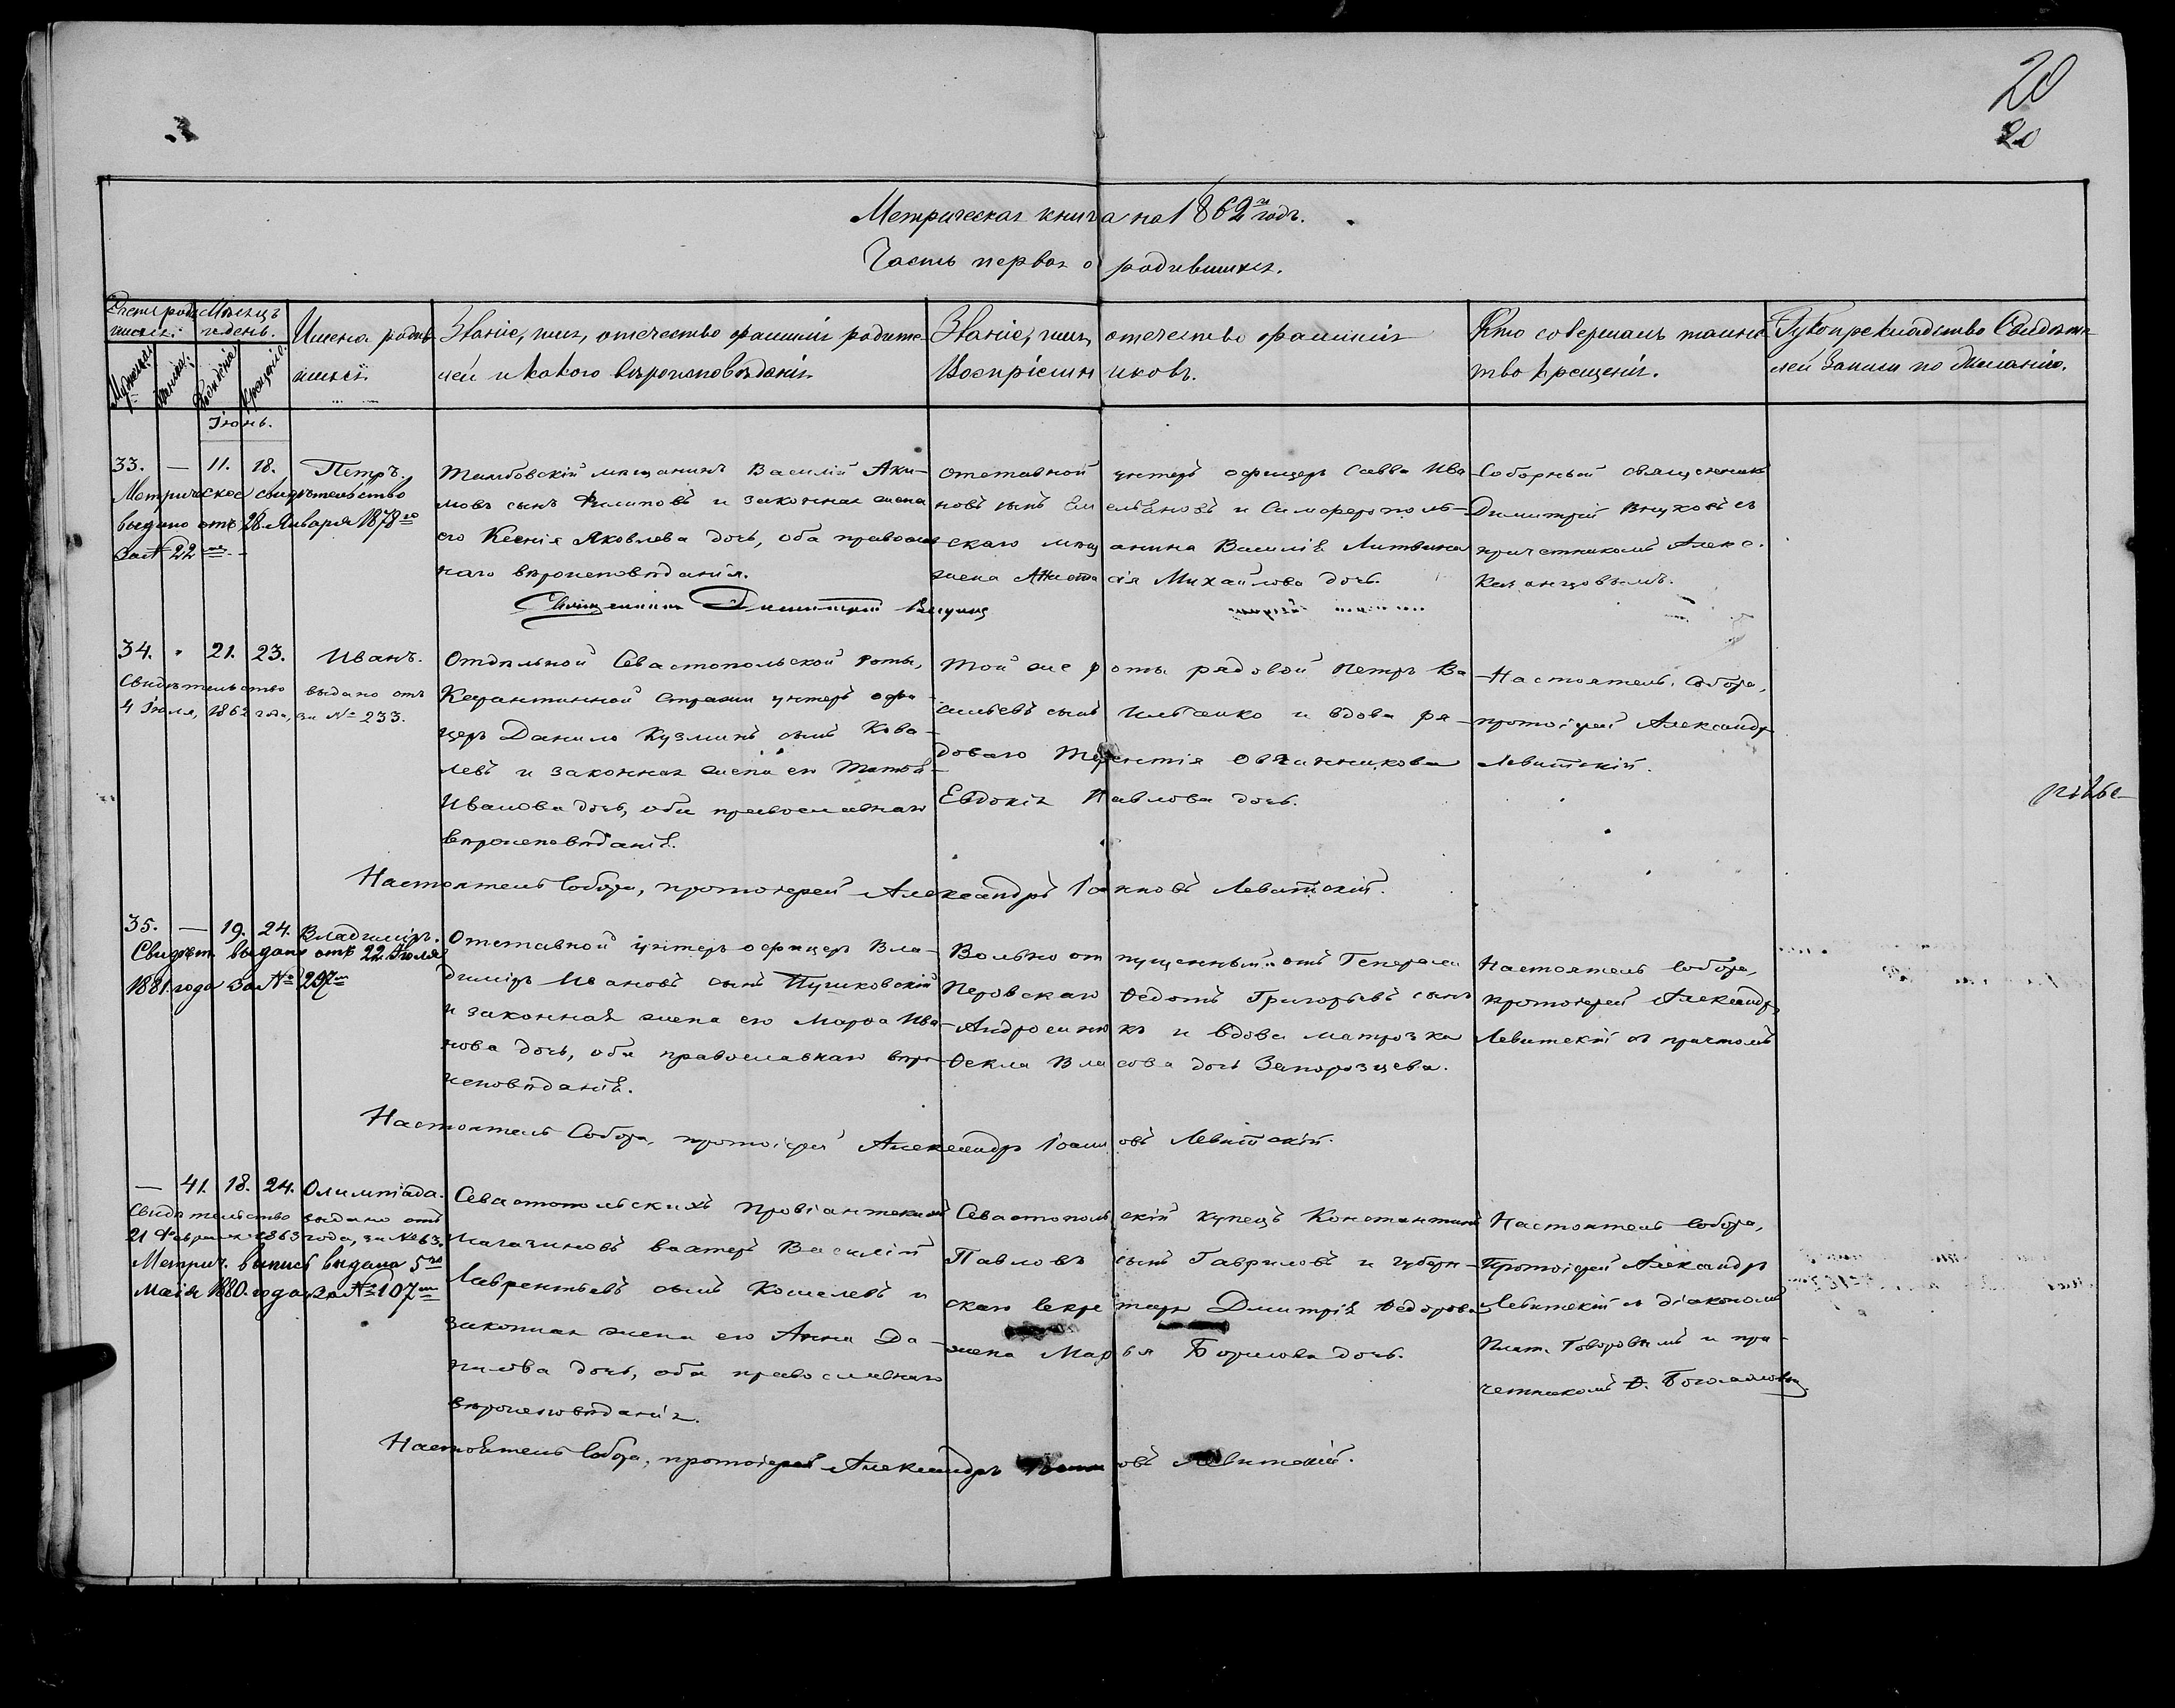 20
20
Метрическая книга на 1862й годъ.
Часть первая о родившихся.
Счетъ родив
шихся.
Мѣсяцъ
и день.
Имена родив
шихся.
Званіе, имя, отчество фамилія родите
лей и какого вѣроисповѣданія.
Званіе, имя, отчество фамилія
Воспріемниковъ.
Кто совершалъ таинс
тво крещенія.
Рукоприкладство Свидѣте
лей Записи по желанію.
Рожденія
Крещенія.
Іюнь.
33. — 11. 18. Петръ.
Метрическое свидѣтельство
выдано отъ 28. Января 1878го
за № 22мъ.
мѣщанинъ Василій Аки-
мовъ сынъ Филиповъ и законная жена
его Ксенія Яковлева дочь, оба православ
наго вѣроисповѣданія.
Отставной унтеръ офицеръ Савва Ива
новъ сынъ Емельяновъ и Симферополь-
скаго мѣщанина Василія Литвина
жена Анастасія Михайлова дочь.
Соборный священникъ
Димитрій Внуковъ съ
причетникомъ Алек.
Казанцовымъ.
Священникъ Димитрій Внуковъ
34. „ 21. 23. Иванъ.
Свидѣтельство выдано отъ
4 Іюля, 1862 года, за № 233.
Отдѣльной Севастопольской роты,
Карантинной Стражи унтеръ офи-
церъ Данило Кузминъ сынъ Кова-
левъ и законная жена его
Иванова дочь, оба православнаго
вѣроисповѣданія.
Той же роты рядовой Петръ Ва
сильевъ сынъ Ильченко и вдова ря-
доваго Терентія Овчинникова
Евдокія Павлова дочь.
Настоятель Собора,
протоіерей Александръ
Левитскій.
Настоятель Собора, протоіерей Александръ Іоанновъ Левитскій.
35. — 19. 24. Владиміръ.
Свидѣт. выдано отъ 22. Іюля
1881 года за № 297мъ
Отставной унтеръ офицеръ Вла-
диміръ Ивановъ сынъ
и законная жена его Марфа Ива-
нова дочь, оба православнаго вѣро-
исповѣданія.
Вольно отпущенный отъ Генерала
Перовскаго Ѳедотъ Григорьевъ сынъ
и вдова матрозка
Ѳекла Власова дочь Запорозцева.
Настоятель Собора,
протоіерей Александръ
Левитскій съ причтомъ
Настоятель Собора, протоіерей Александръ Іоанновъ Левитскій.
— 41. 18. 24. Олимпіада.
Свидѣтельство выдано отъ
21 Февраля 1863 года, за № 63.
Метрич. выпись выдана 5го
Маія 1880. года за № 107мъ
Севастопольскихъ Провіантскихъ
магазиновъ вахтеръ Василій
Лаврентьевъ сынъ Кошелевъ и
законная жена его Анна Да-
нилова дочь, оба православнаго
вѣроисповѣданія.
Севастопольскій купецъ Константинъ
Павловъ сынъ Гавриловъ и губерн-
скаго секретаря Димитрія Ѳедорова
жена Марья Борисова дочь.
Настоятель Собора,
Протоіерей Александръ
Левитскій съ діакономъ
Плат. Говоровымъ и при-
четникомъ
Настоятель Собора, протоіерей Александръ Іоанновъ Левитскій.